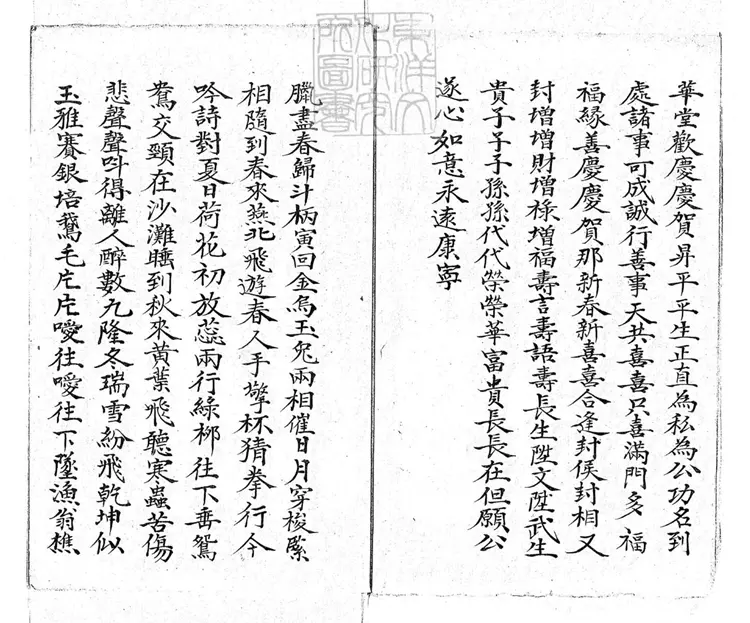 華堂歡慶慶賀昇平平生正直為私為公功名到
處諸事可成誠行善事天共喜喜只喜滿門多福
福緣善慶慶賀那新春新喜喜合逢封侯封相又
封增增財增祿增福壽言壽語壽長生陞文陞武生
貴子子子孫孫代代榮榮華富貴長長在但願公
遂心如意永遠康寧
臘盡春歸斗柄寅回金烏玉兎兩相催日月穿梭緊
相隨到春來燕北飛遊春人手擎杯猜拳行令
吟詩對夏日荷花初放蕊兩行綠柳往下垂鴛
鴦交頸在沙灘睡到秋來黃葉飛聽寒蟲苦傷
悲聲聲呌得離人醉數九隆冬瑞雪紛飛乾坤似
玉雅賽銀培鵞毛片片噯往噯往下墜漁翁樵
東洋文化研究所圖書